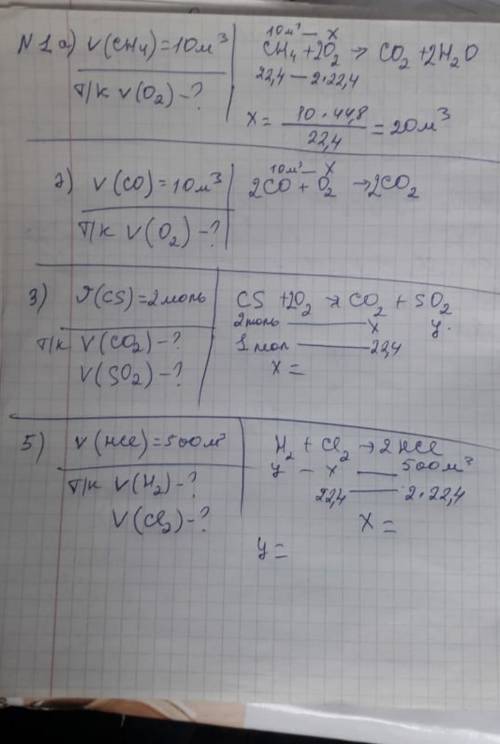 N 1 a) V(CH₄)=10м³
т/к V(O₂)-?
10м³ — x
CH₄ + 2O₂ → CO₂ + 2H₂O
22,4 — 2·22,4
x = 10·44,8 / 22,4 = 20м³
2) V(CO)=10м³
т/к V(O₂)-?
10м³ — x
2CO + O₂ → 2CO₂
3) ν(CS)=2моль
т/к V(CO₂)-?
V(SO₂)-?
CS + 2O₂ → CO₂ + SO₂
2моль — x y.
1мол — 22,4
x =
5) V(HCl)=500м³
т/к V(H₂)-?
V(Cl₂)-?
H₂ + Cl₂ → 2HCl
y — x — 500м³
22,4 — 2·22,4
x =
y =